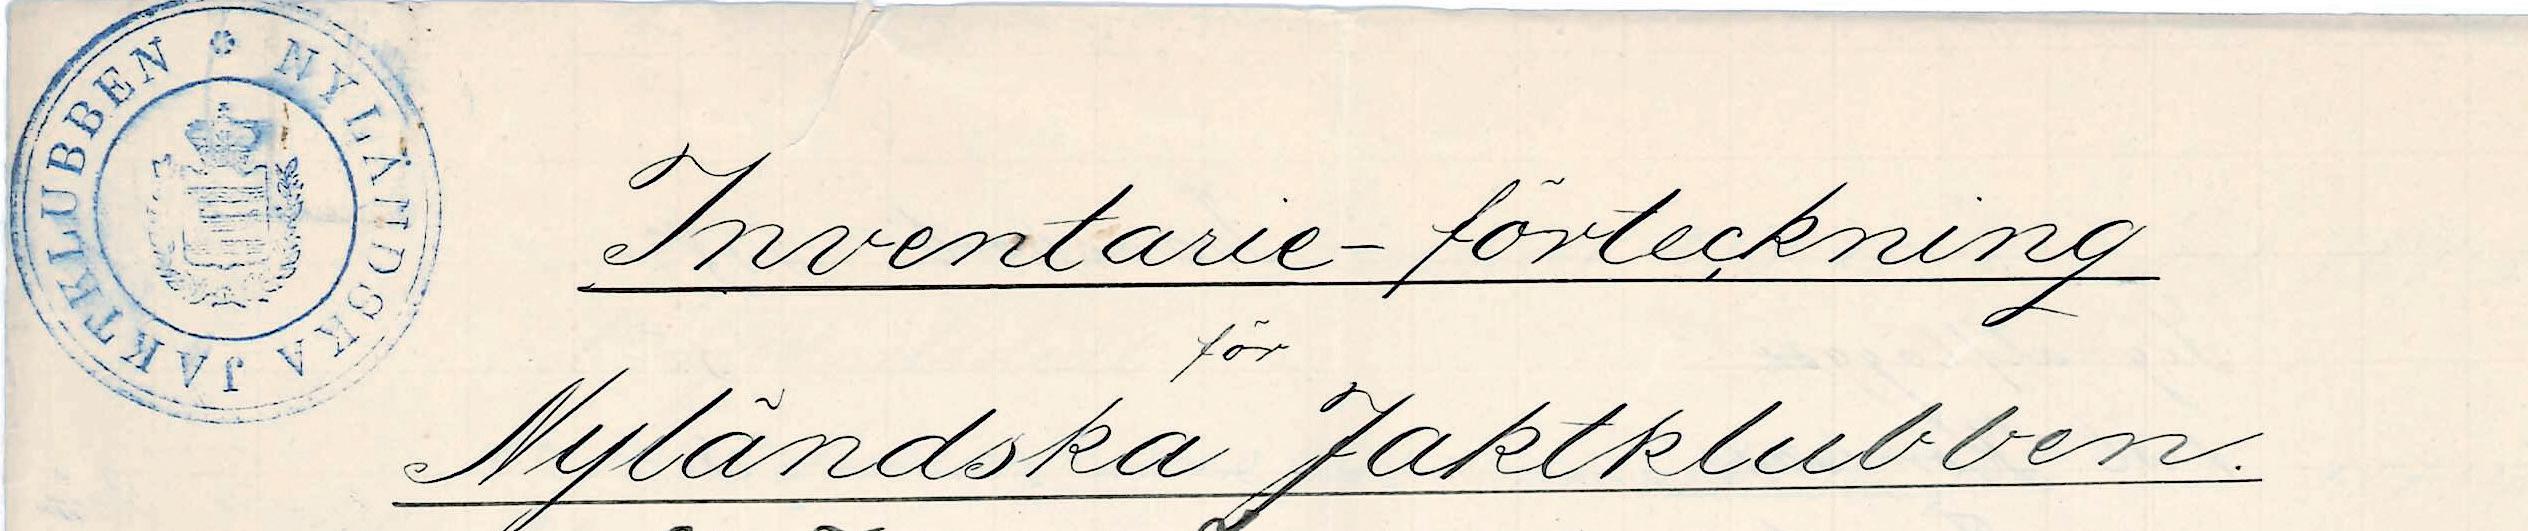 NYLÄNDSKA JAKTKLUBBEN
Inventarie-förteckning
för
Nyländska Jaktklubben.